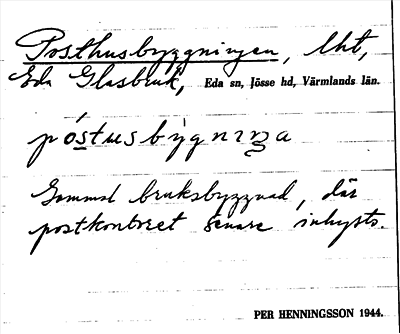 Posthusbyggningen, lht,
Eda Glasbruk, Eda sn, Jösse hd, Värmlands län.
póstusbỳgnıŋa
Gammal bruksbyggnad, där
postkontoret senare inhysts.
PER HENNINGSSON 1944.